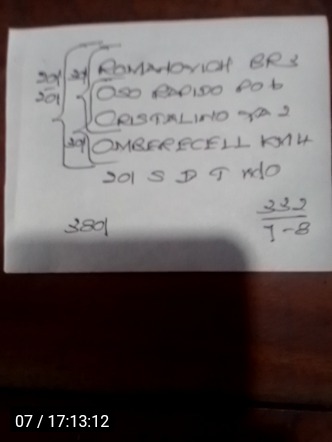 20/ 20/
20/ ROMANOVICH BR3
OSO RAPIDO PO6
CRISTALINO YA 2
20/ OMBERECELL KM4
20/ S D T
380/
332
7-8
07 / 17:13:12